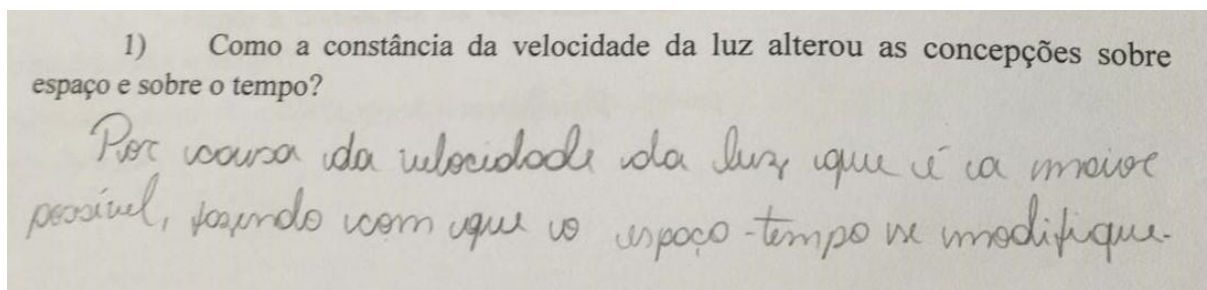 1) Como a constância da velocidade da luz alterou as concepções sobre
espaço e sobre o tempo?
Por causa da velocidade da luz que é a maior
possível, fazendo com que o espaço-tempo se modifique.